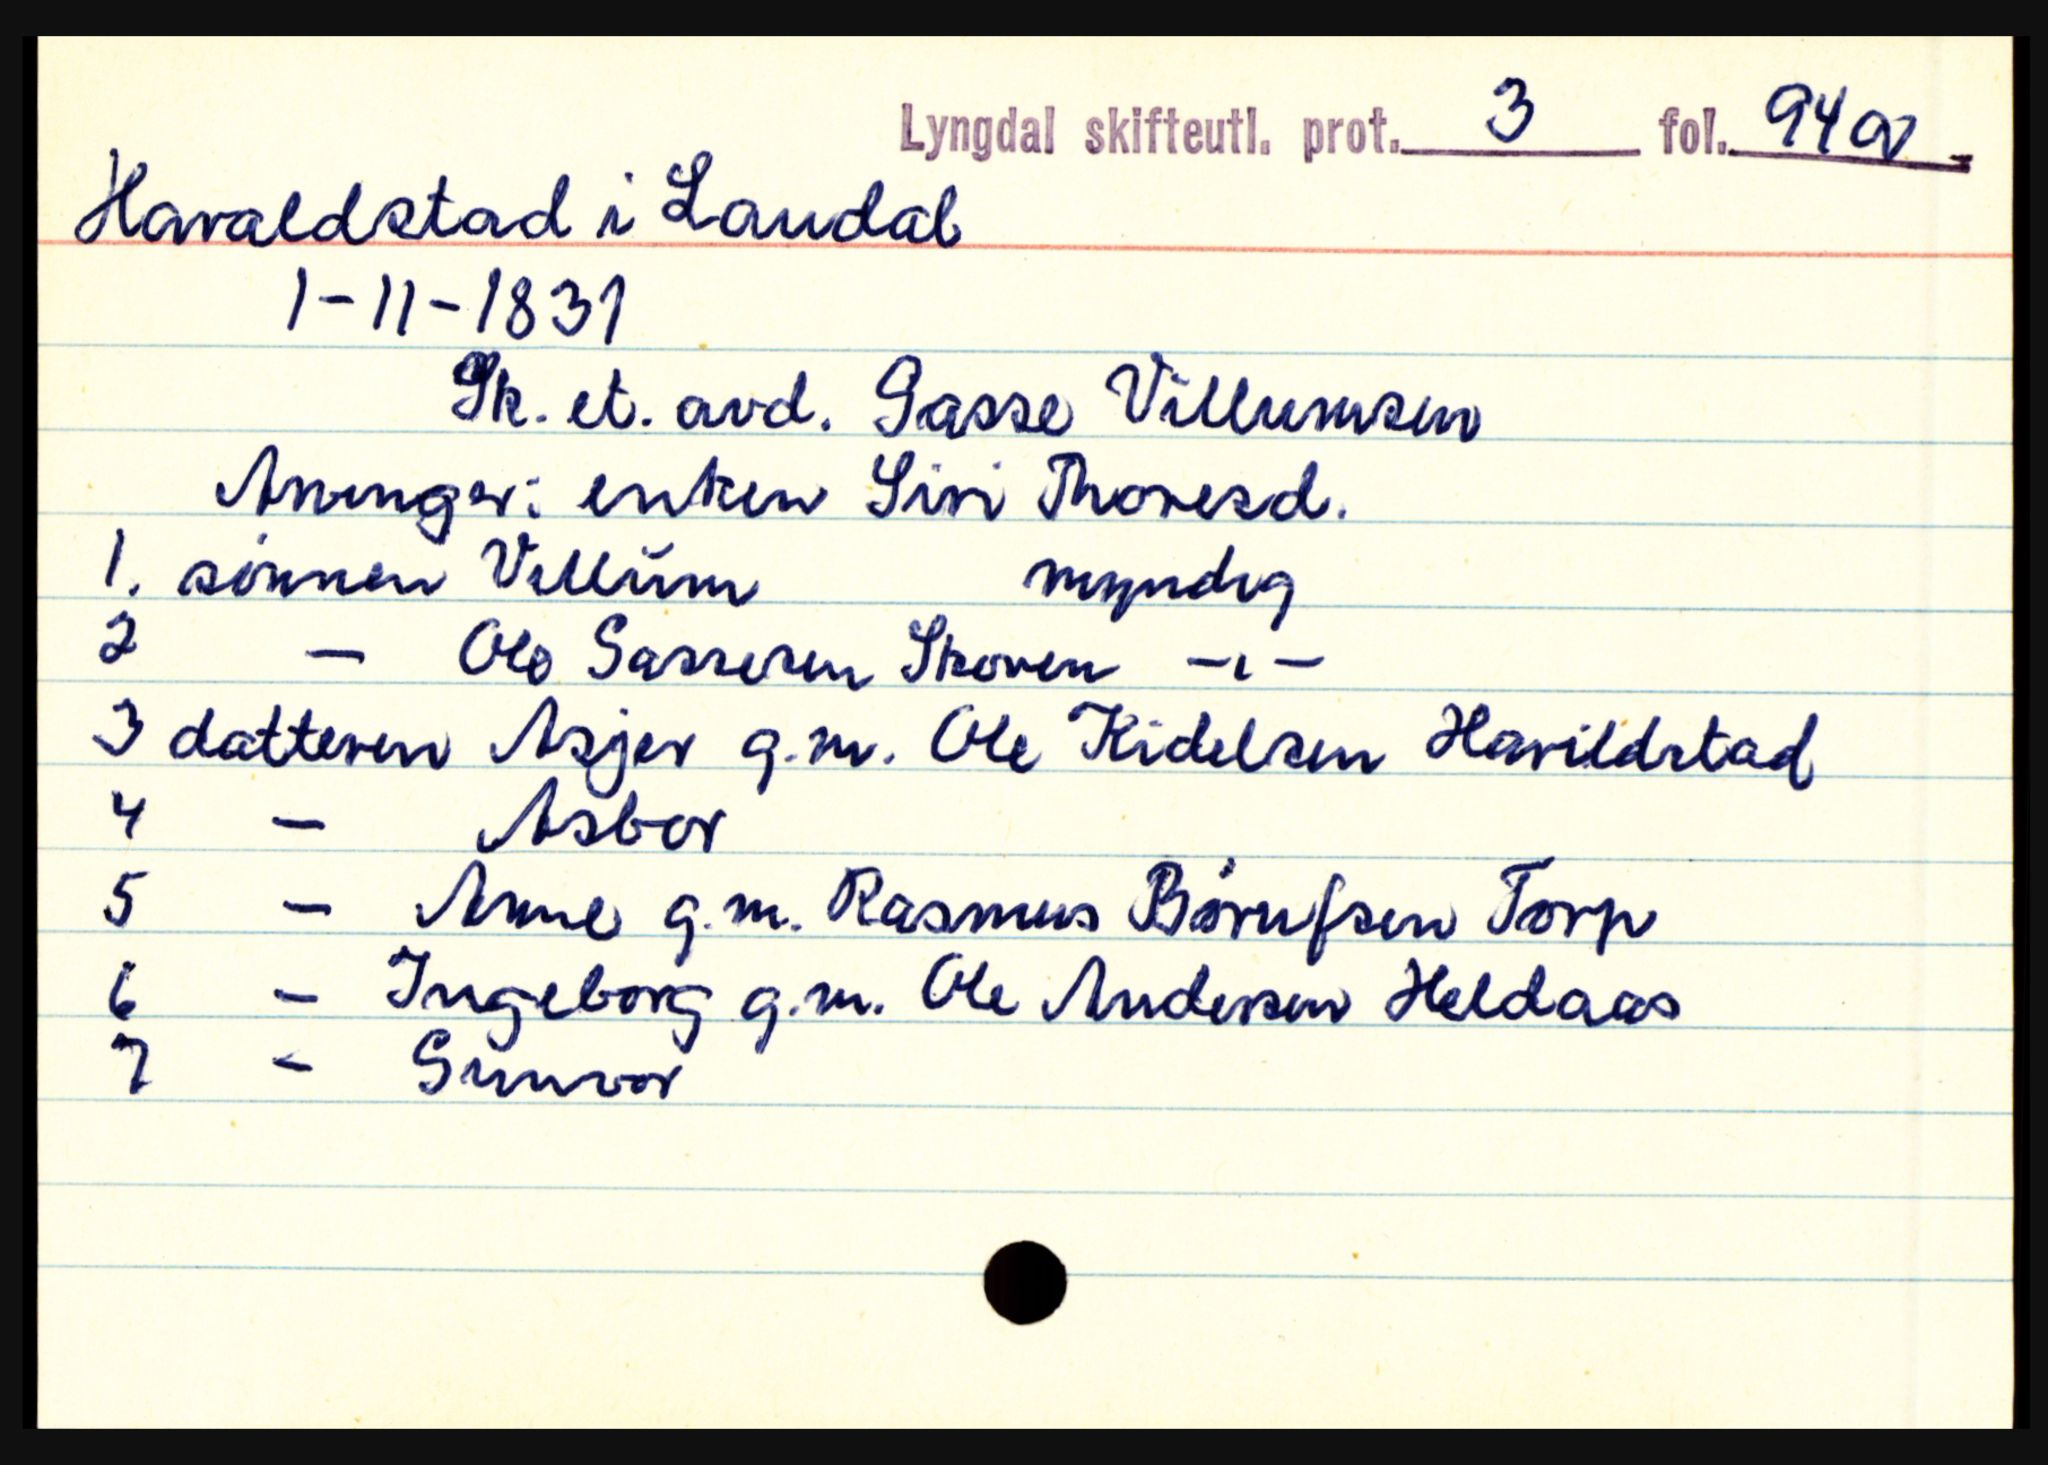 Lyngdal skifteutl. prot. 3 fol. 94a
Haraldstad i Laudal
1-11-1831
Sk. et. avd. Sasse Villumsen
Arvinger: enken Siri Thoresd.
1. sønnen Villum myndig
2 — Ole Sassesen Skoven —"—
3 datteren Asjer g.m. Ole Kidelsen Harildstad
4 — Asbor
5 — Anne g.m. Rasmus Børufsen Torp
6 — Ingeborg g.m. Ole Andersen Heldaas
7 — Gunvor